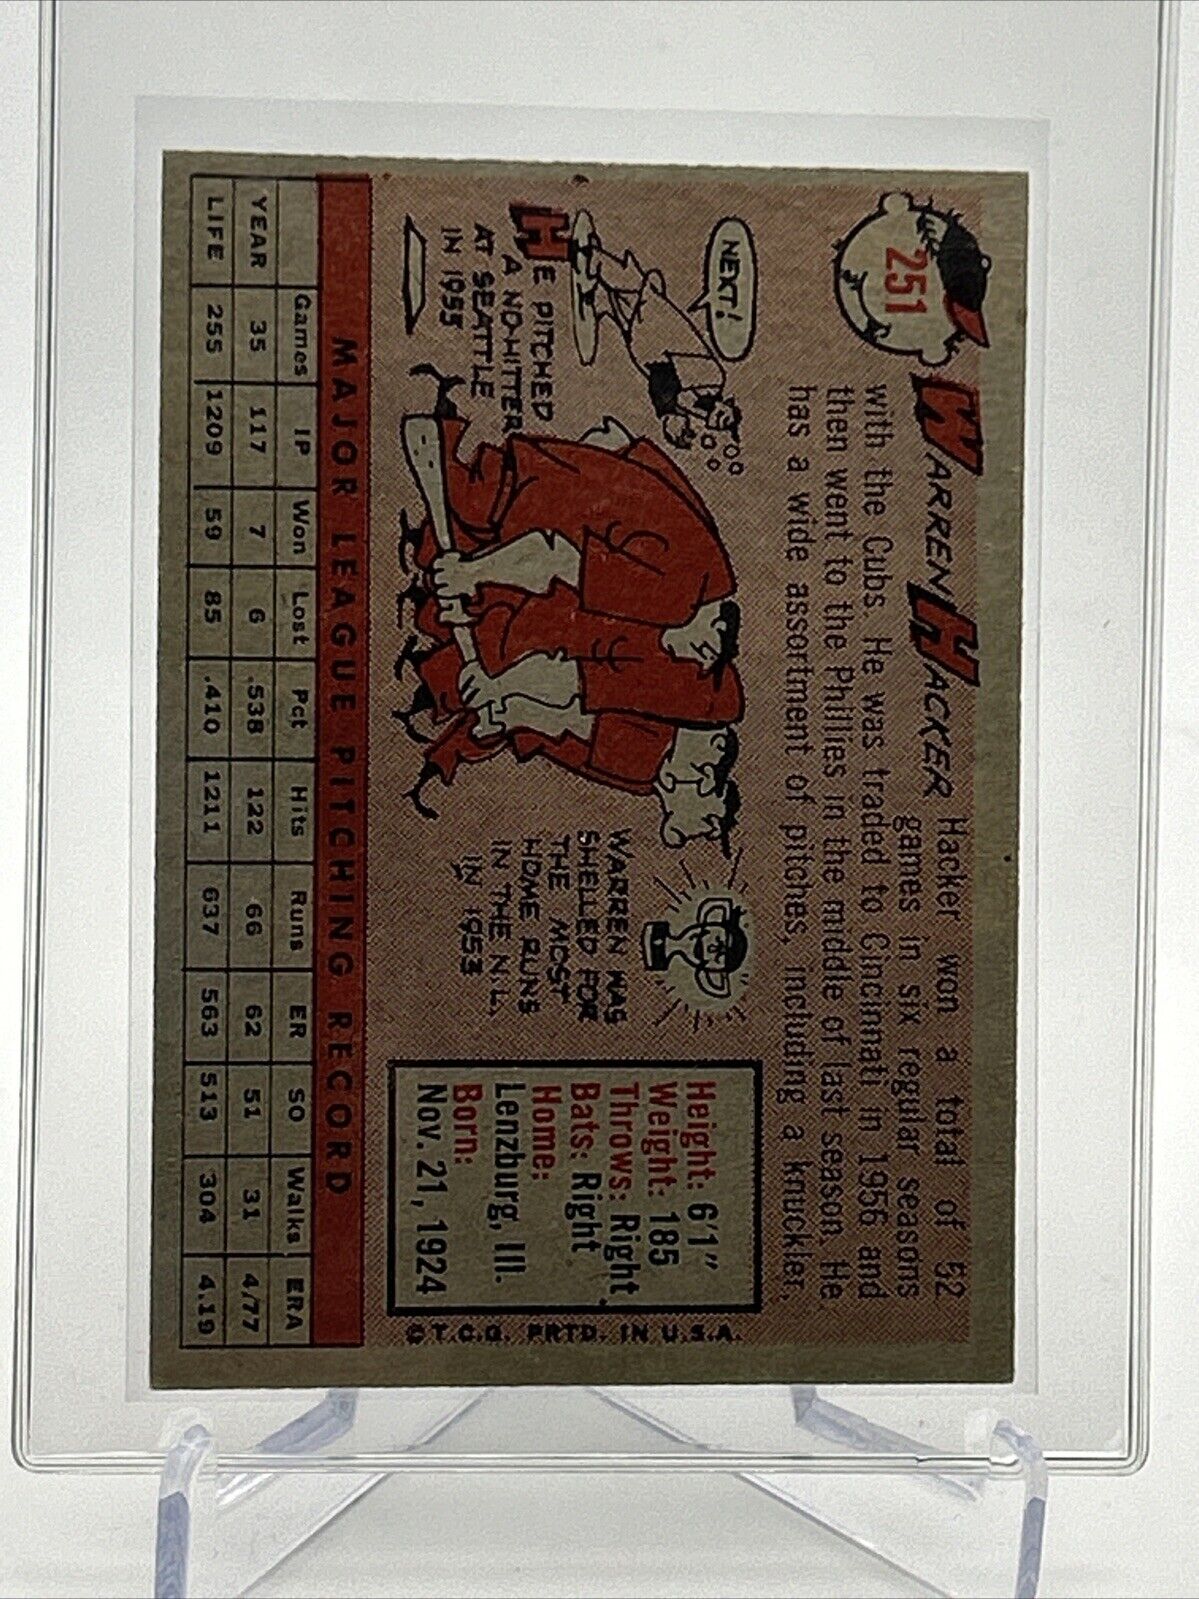 251
WARREN HACKER
Hacker won a total of 52
games in six regular seasons
with the Cubs. He was traded to Cincinnati in 1956 and
then went to the Phillies in the middle of last season. He
has a wide assortment of pitches, including a knuckler.
NEXT!
HE PITCHED
A NO-HITTER
AT SEATTLE
IN 1955
WARREN WAS
SHELLED FOR
THE MOST
HOME RUNS
IN THE N.L.
IN 1953
Height: 6'1"
Weight: 185
Throws: Right
Bats: Right
Home:
Lenzburg, Ill.
Born:
Nov. 21, 1924
© T.C.G. PRTD. IN U.S.A.
MAJOR LEAGUE PITCHING RECORD
Games IP Won Lost Pct Hits Runs ER SO Walks ERA
YEAR 35 117 7 6 .538 122 66 62 51 31 4/77
LIFE 255 1209 59 85 .410 1211 637 563 513 304 4.19